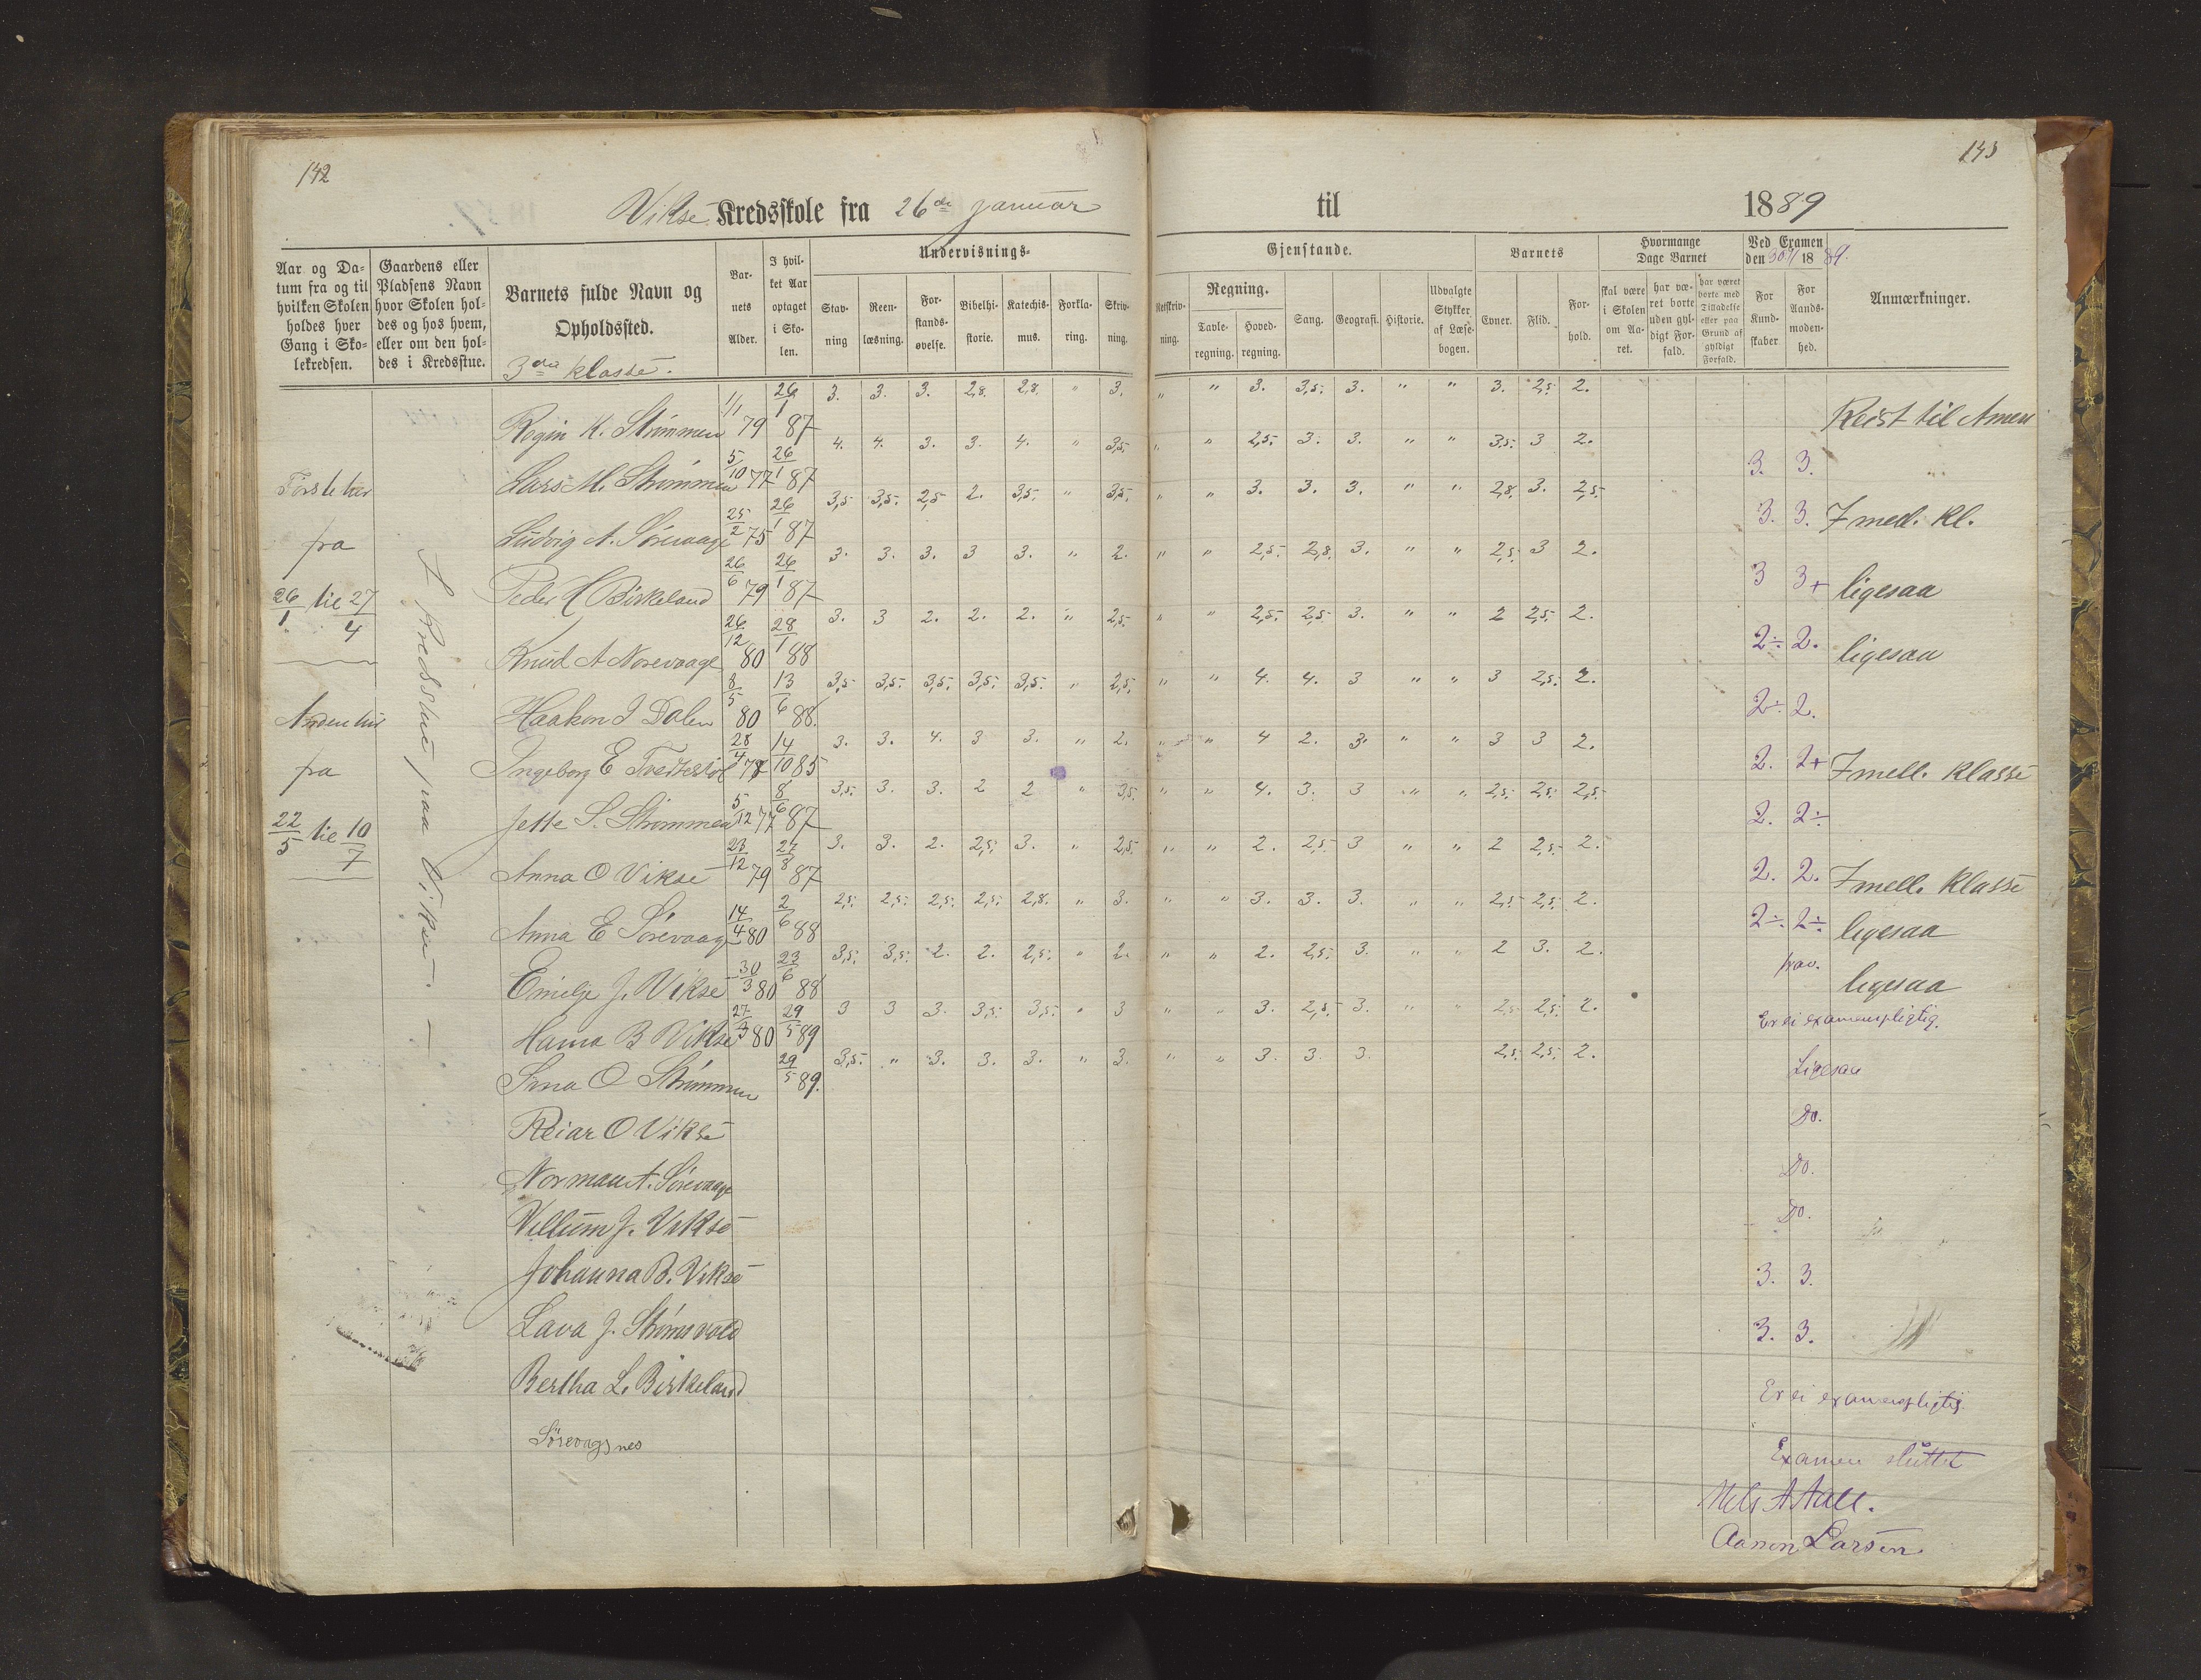 142
143
Vikse Kredsskole fra 26de januar til 1889
Aar og Datum fra og til hvilken Skolen holdes hver Gang i Skolekredsen.
Gaardens eller Pladsens Navn hvor Skolen holdes og hos hvem, eller om den holdes i Kredsstue.
Barnets fulde Navn og Opholdssted.
Barnets Alder.
I hvilket Aar optaget i Skolen.
Undervisnings-
Stavning
Reenlæsning.
Forstandsøvelse.
Bibelhistorie.
Katechismus.
Forklaring.
Skrivning.
Gjenstande.
Retskrivning.
Regning.
Tavleregning.
Hovedregning.
Sang.
Geografi.
Historie.
Udvalgte Stykker af Læsebogen.
Barnets
Evner.
Flid.
Forhold.
Hvormange Dage Barnet
skal være i Skolen om Aaret.
har været borte uden gyldigt Forfald.
har været borte med Tilladelse eller paa Grund af gyldigt Forfald.
Ved Examen den 30/7 1889.
For Kundskaber
For Aandsmodenhed.
Anmærkninger.
3die klasse.
Første har
fra
26/1 til 27/4
Anden har
fra
22/5 til 10/7
I Kredsstue paa Vikse
Regin K. Strømmen 1/1 79 26/1 87 3. 3. 3. 2,8. 2,8. " 3. " " 3. 3,5. 3. " " 3. 2,5. 2. Reist til Amen
Lars M. Strømmen 5/10 77 26/1 87 4. 4. 3. 3. 4. " 3,5. " " 2,5. 3. 3. " " 3,5. 3 2. 3. 3.
Ludvig A. Sørevaage 25/2 75 26/1 87 3,5 3,5. 2,5 2. 3,5. " 3,5. " " 3. 3. 3. " " 2,8. 3. 2,5. 3. 3. I mell. kl.
Peder H Birkeland 26/6 79 26/1 87 3. 3. 3. 3 3. " 2. " " 2,5. 2,8. 3. " " 2,5. 3 2. 3 3+ ligesaa
Knud A Norevaage 26/12 80 28/1 88 3. 3 2. 2. 2. " 2,5. " " 2,5. 2,5 3. " " 2 2,5. 2. 2÷ 2. ligesaa
Haakon I Dalen 8/5 80 13/6 88. 3,5 3,5. 3,5. 3,5. 3,5. " 2,5. " " 4. 4. 3 " " 3 2,5. 2. 2÷ 2.
Ingeborg E Tvedteskol 28/4 78 14/10 85 3. 3. 4. 3 3. " 2. " " 4 2. 3. " " 3 3 2. 2. 2+ I mell. klasse
Jette S. Strømmen 5/12 77 8/6 87 3,5. 3. 3. 2 2 " 3,5. " " 4. 3. 3 " " 2,5. 2,5. 2,5. 2. 2÷
Anna O Vikse 28/12 79 27/8 87 3. 3. 2. 2,5. 3. " 2,5. " " 2. 2,5. 3 " " 2 2,5. 2. 2. 2. I mell. klasse
Anna E Sørevaage 14/4 80 2/6 88 2,5. 2,5. 2,5. 2,5. 2,8. " 3. " " 3. 3. 3. " " 2,5 2,5. 2. 2÷ 2÷ ligesaa
Emelje J. Vikse 30/3 80 23/6 88 3,5. 3,5. 2. 2. 2,5. " 2. " " 2. 2,5. 3. " " 2 3. 2. frav. ligesaa
Hanna B Vikse 27/3 80 29/5 89 3 3 3. 3,5. 3,5. " 3 " " 3. 2,5. 3. " " 2,5 2,5. 2. Er ei examenspligtig.
Sina O Strømmen 29/5 89. 3,5. " 3. 3. 3. " 3. " " 3. 3. 3. 2,5. 2,5. 2. Ligesaa
Reiar O Vikse Do.
Norman A. Sørevaage Do.
Villum J. Vikse Do.
Johanna B. Vikse 3. 3.
Lava J. Strømsvold 3. 3.
Bertha L. Birkeland Er ei examenspligtig.
Sørevagsnes
Examen sluttet
Nels A Aall.
Aamon Larsen